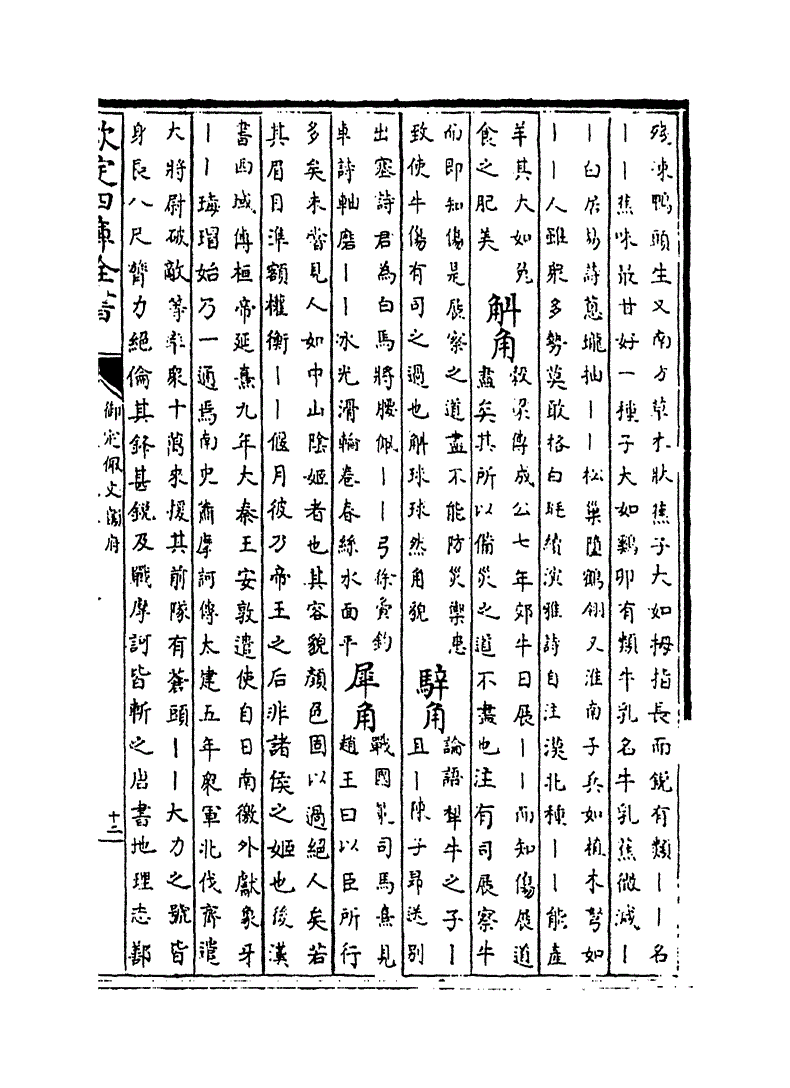 殘凍鴨頭生又南方草木狀蕉子大如拇指長而銳有類丨丨名
丨丨蕉味最甘好一種子大如鷄卵有類牛乳名牛乳蕉微減丨
丨白居易詩蔥壠抽丨丨松巢墮鶴翎又淮南子兵如植木弩如
丨丨人雖衆多勢莫敢格白珽續演雅詩自注漠北種丨丨能產
羊其大如兎
食之肥美
觓角
穀梁傳成公七年郊牛日展丨丨而知傷展道
盡矣其所以備災之道不盡也注有司展察牛
而即知傷是展察之道盡不能防災禦患
致使牛傷有司之過也觓球球然角貌
騂角
論語犂牛之子丨
且丨陳子昂送別
出塞詩君為白馬將腰佩丨丨弓徐夤釣
車詩軸磨丨丨冰光滑輪卷春絲水面平
犀角
戰國策司馬憙見
趙王曰以臣所行
多矣未嘗見人如中山陰姬者也其容貌顏色固以過絕人矣若
其眉目準額權衡丨丨偃月彼乃帝王之后非諸侯之姬也後漢
書西域傳桓帝延熹九年大秦王安敦遣使自日南徼外獻象牙
丨丨瑇瑁始乃一通焉南史蕭摩訶傳太建五年衆軍北伐齊遣
大將尉破敵等率衆十萬來援其前隊有蒼頭丨丨大力之號皆
身長八尺膂力絕倫其鋒甚銳及戰摩訶皆斬之唐書地理志鄯
欽定四庫全書
御定佩文韻府
十二